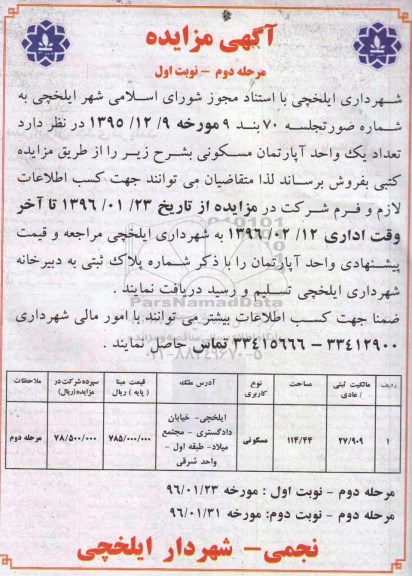 آگهی مزایده
مرحله دوم – نوبت اول
شهرداری ایلخچی با استناد مجوز شورای اسلامی شهر ایلخچی به
شماره صورتجلسه ۷۰ بند ۹ مورخه ۹/ ۱۲/ ۱۳۹۵ در نظر دارد
تعداد یک واحد آپارتمان مسکونی بشرح زیر را از طریق مزایده
کتبی بفروش برساند لذا متقاضیان می توانند جهت کسب اطلاعات
لازم و فرم شرکت در مزایده از تاریخ ۲۳/ ۰۱/ ۱۳۹۶ تا آخر
وقت اداری ۱۲/ ۰۲/ ۱۳۹۶ به شهرداری ایلخچی مراجعه و قیمت
پیشنهادی واحد آپارتمان را با ذکر شماره پلاک ثبتی به دبیرخانه
شهرداری ایلخچی تسلیم و رسید دریافت نمایند .
ParsNamadData
ضمنا جهت کسب اطلاعات بیشتر می توانند با امور مالی شهرداری
۳۳۴۱۲۹۰۰ – ۳۳۴۱۵۶۶۶ تماس حاصل نمایند .
۰۲۱-۸۸۳۴۹۶۷۰-۵
ردیف مالکیت ثبتی / عادی مساحت نوع کاربری آدرس ملک قیمت مبنا ( پایه ) ریال سپرده شرکت در مزایده(ریال) ملاحظات
۱ ۲۷/۹۰۹ ۱۱۴/۴۴ مسکونی ایلخچی- خیابان دادگستری – مجتمع میلاد- طبقه اول – واحد شرقی ۷۸۵/۰۰۰/۰۰۰ ۷۸/۵۰۰/۰۰۰ مرحله دوم
مرحله دوم – نوبت اول : مورخه ۹۶/۰۱/۲۳
مرحله دوم – نوبت دوم: مورخه ۹۶/۰۱/۳۱
نجمی– شهردار ایلخچی